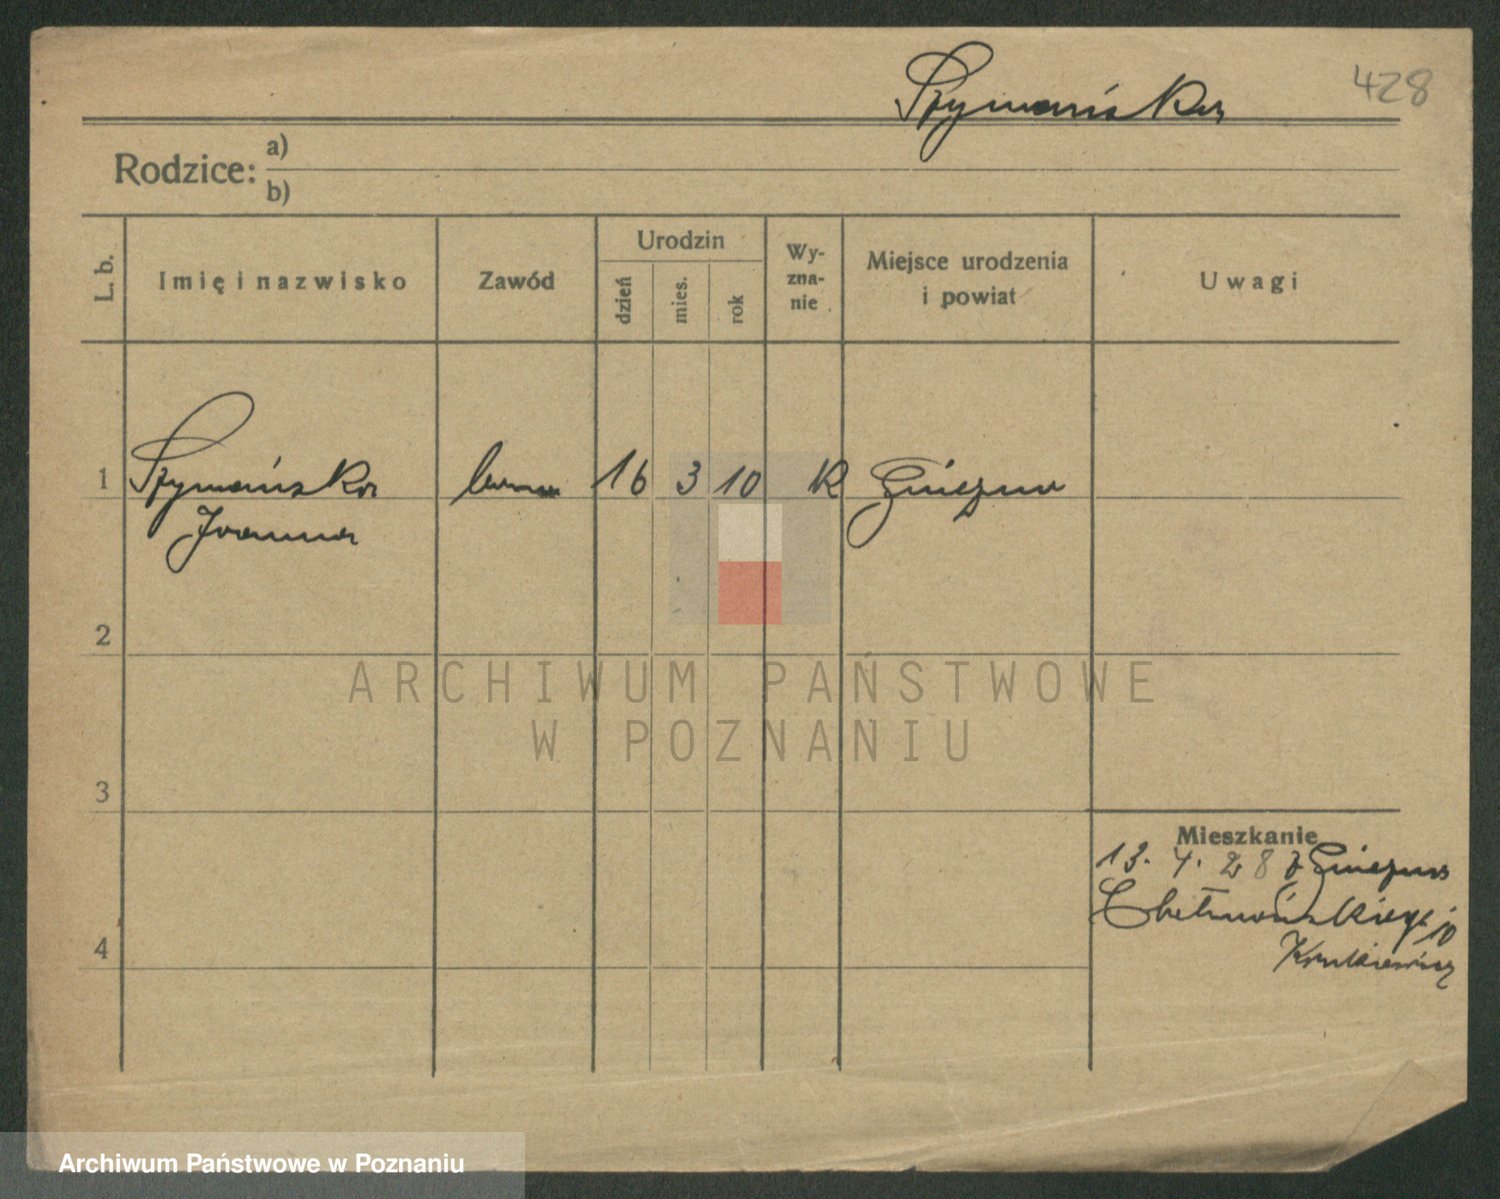 Szymańska
428
Rodzice: a)
b)
L. b.
Imię i nazwisko
Zawód
Urodzin
dzień
mies.
rok
Wy-
zna-
nie
Miejsce urodzenia
i powiat
Uwagi
1 Szymańska 16 3 10 K Gniezno
Joanna
2
3
4
Mieszkanie
13. 4. 28 z Gniezna
Chełmońskiego 10
ARCHIWUM PAŃSTWOWE
W POZNANIU
Archiwum Państwowe w Poznaniu